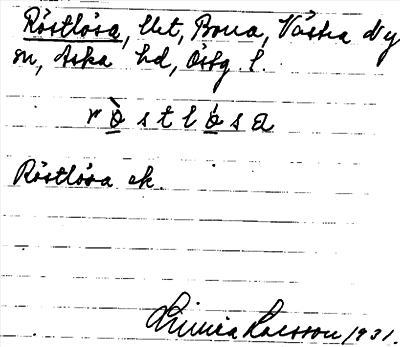 Röstlösa, lht, Bona, Västra Ny
sn, Aska hd, Östg. l.
rö̀stlösa
Röstlösa ek.
Linnéa Larsson 1931.